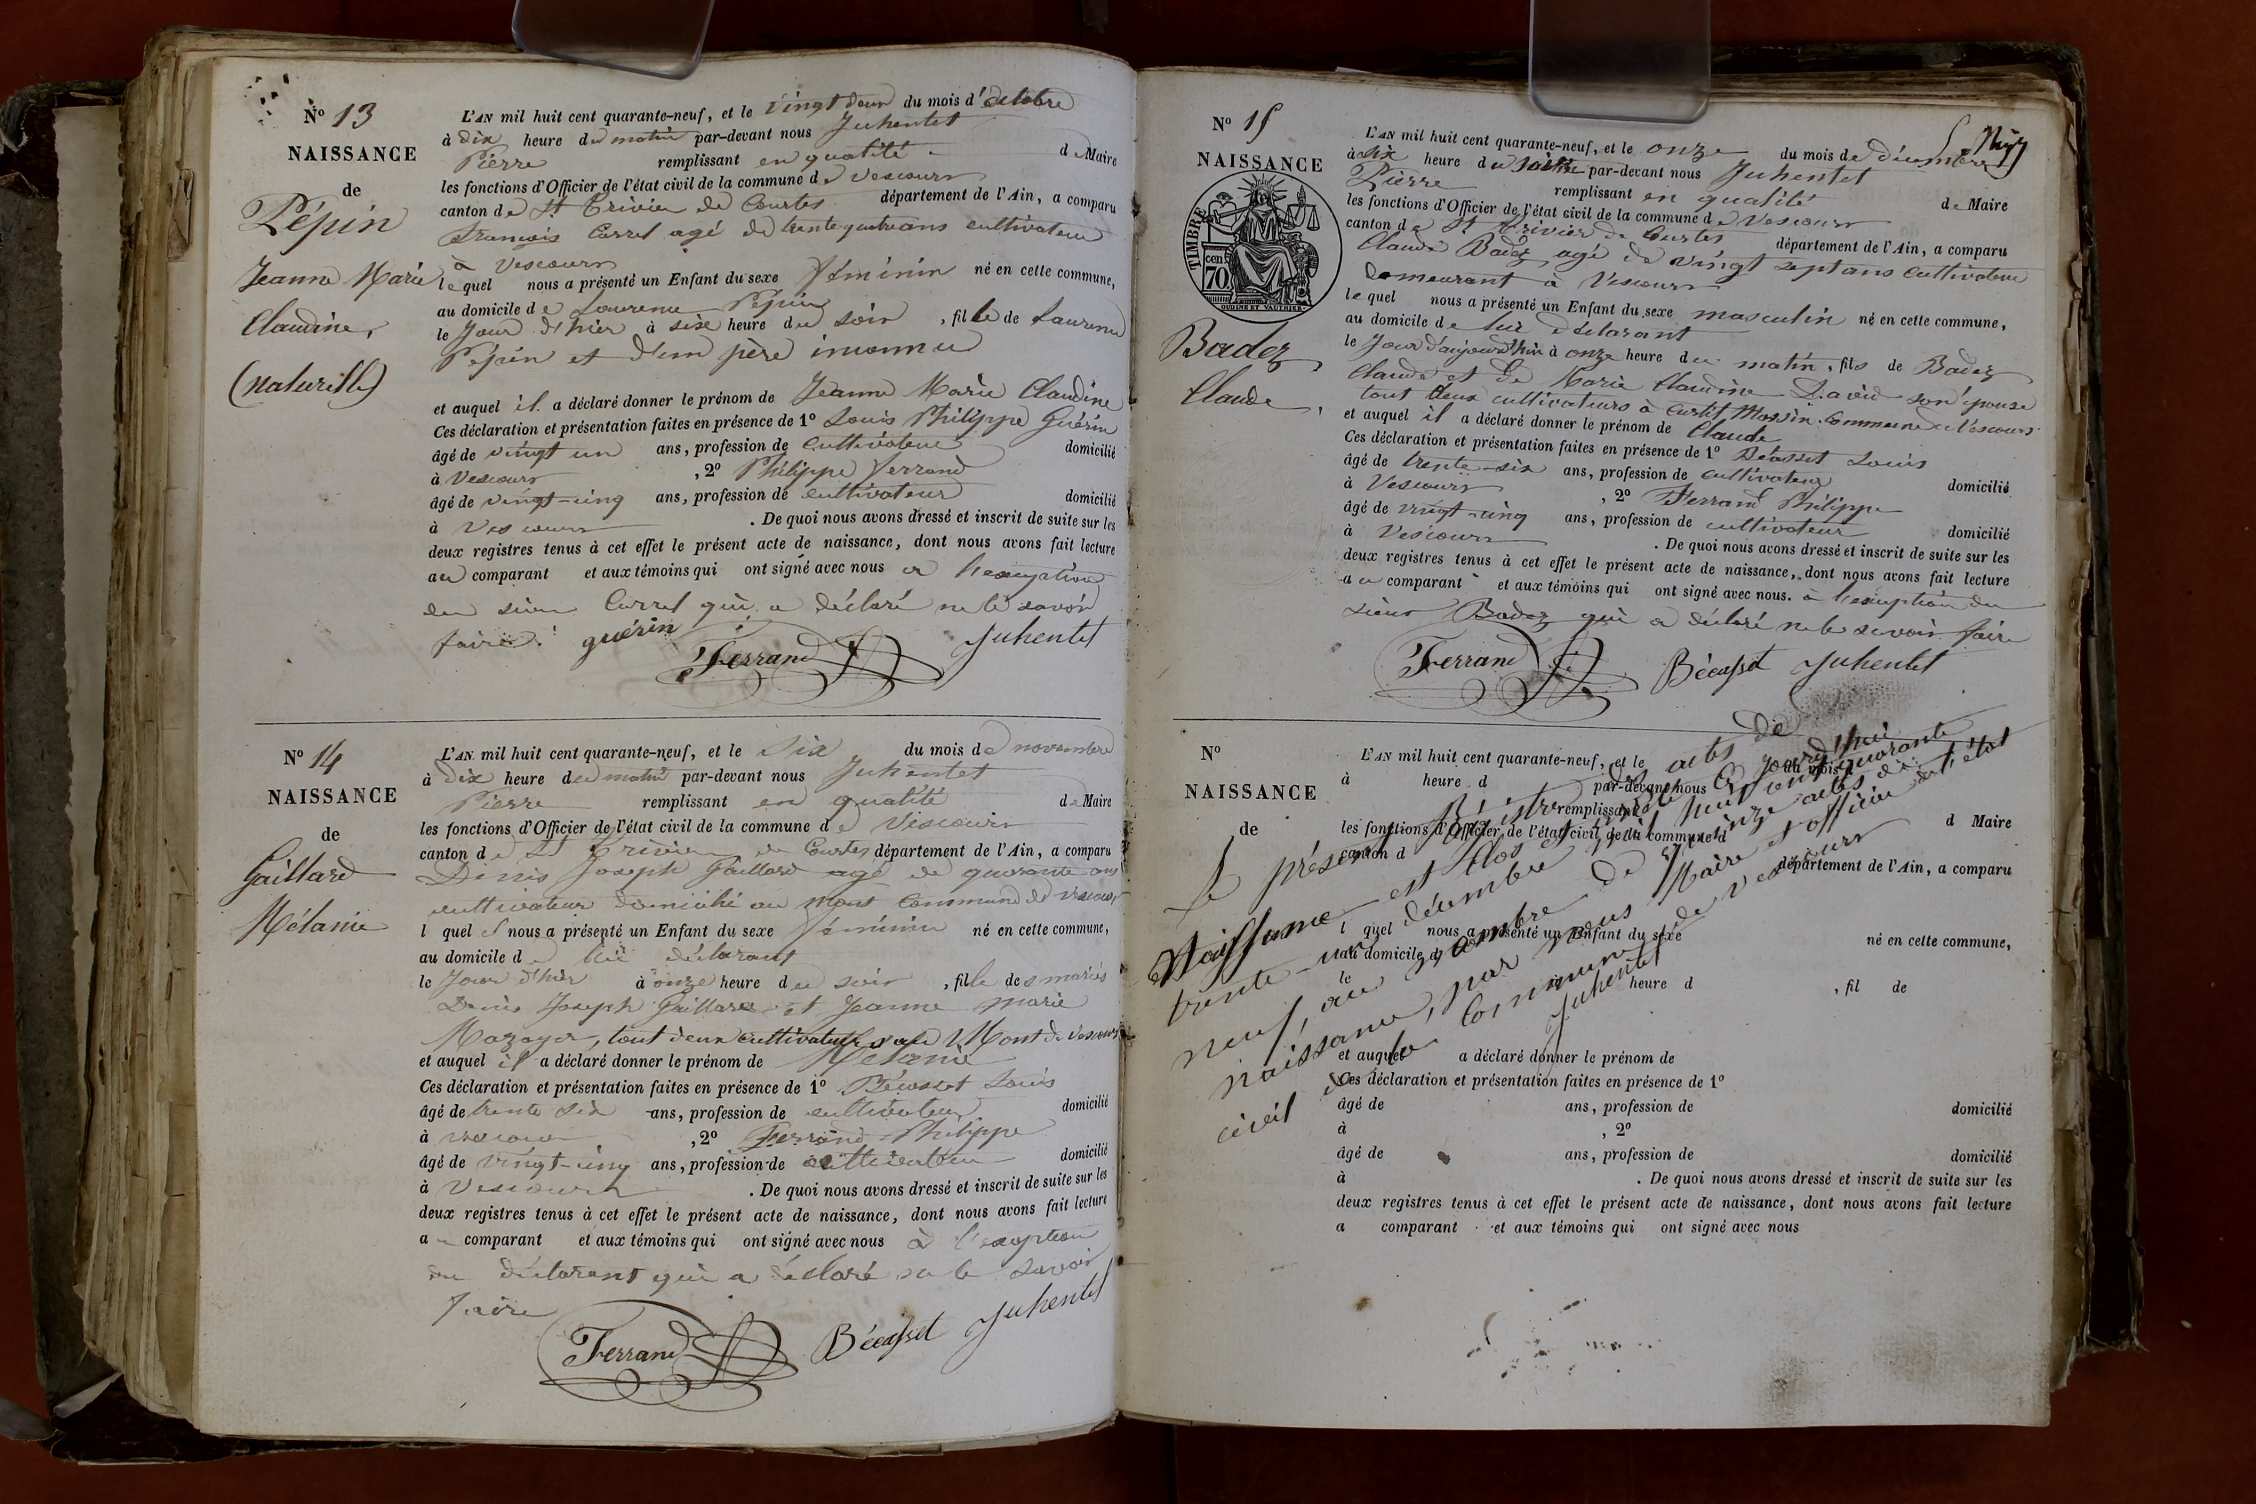 N° 13
NAISSANCE
de
Pépin
Jeanne Marie
Claudine,
(naturelle)
L'AN mil huit cent quarante-neuf, et le vingt deux du mois d'octobre
à dix heure du matin par-devant nous Juhentet
Pierre remplissant en qualité de Maire
les fonctions d'Officier de l'état civil de la commune de Vescours
canton de St Trivier de Courtes département de l'Ain, a comparu
François Carrel agé de trente quatre ans cultivateur
à Vescours
lequel nous a présenté un Enfant du sexe féminin né en cette commune,
au domicile de Laurence Pépin
le Jour d'hier à six heure du soir, fille de Laurence
Pépin et d'un père inconnu
et auquel il a déclaré donner le prénom de Jeanne Marie Claudine
Ces déclaration et présentation faites en présence de 1° Louis Philippe Guérin
âgé de vingt un ans, profession de cultivateur domicilié
à Vescours, 2° Philippe Ferrand
âgé de vingt-cinq ans, profession de cultivateur domicilié
à Vescours. De quoi nous avons dressé et inscrit de suite sur les
deux registres tenus à cet effet le présent acte de naissance, dont nous avons fait lecture
au comparant et aux témoins qui ont signé avec nous à l'exception
du sieur Carrel qui a déclaré ne le savoir
faire. guérin Ferrand Juhentet
N° 14
NAISSANCE
de
Gaillard
Mélanie
L'AN mil huit cent quarante-neuf, et le six du mois de novembre
à dix heure du matin par-devant nous Juhentet
Pierre remplissant en qualité de Maire
les fonctions d'Officier de l'état civil de la commune de Vescours
canton de St Trivier de Courtes département de l'Ain, a comparu
Denis Joseph Gaillard agé de quarante ans
cultivateur domicilié au Mont commune de Vescours
lequel nous a présenté un Enfant du sexe féminin né en cette commune,
au domicile de lui déclarant
le Jour d'hier à onze heure du soir, fille des mariés
Denis Joseph Gaillard et Jeanne Marie
Mazoyer, tout deux cultivateurs au Mont de Vescours
et auquel il a déclaré donner le prénom de Mélanie
Ces déclaration et présentation faites en présence de 1° Bécasset Louis
âgé de trente six ans, profession de cultivateur domicilié
à Vescours, 2° Ferrand Philippe
âgé de vingt-cinq ans, profession de cultivateur domicilié
à Vescours. De quoi nous avons dressé et inscrit de suite sur les
deux registres tenus à cet effet le présent acte de naissance, dont nous avons fait lecture
au comparant et aux témoins qui ont signé avec nous à l'exception
du déclarant qui a déclaré ne le savoir
faire
Ferrand Bécasset Juhentet
N° 15
NAISSANCE
TIMBRE
cen. 70
OUDINE ET VAUTHIER
Badez
Claude,
L'AN mil huit cent quarante-neuf, et le onze du mois de décembre
à six heure du soir par-devant nous Juhentet
Pierre remplissant en qualité de Maire
les fonctions d'Officier de l'état civil de la commune de Vescours
canton de St Trivier de Courtes département de l'Ain, a comparu
Claude Badez, agé de vingt sept ans cultivateur
demeurant à Vescours
lequel nous a présenté un Enfant du sexe masculin né en cette commune,
au domicile de lui déclarant
le Jour d'aujourd'hui à onze heure du matin, fils de Badez
Claude et de Marie Claudine David son épouse
tout deux cultivateurs à Curtit Massin commune Vescours
et auquel il a déclaré donner le prénom de Claude
Ces déclaration et présentation faites en présence de 1° Bécasset Louis
âgé de trente-six ans, profession de cultivateur domicilié
à Vescours, 2° Ferrand Philippe
âgé de vingt-cinq ans, profession de cultivateur domicilié
à Vescours. De quoi nous avons dressé et inscrit de suite sur les
deux registres tenus à cet effet le présent acte de naissance, dont nous avons fait lecture
au comparant et aux témoins qui ont signé avec nous. à l'exception du
sieur Badez qui a déclaré ne le savoir faire
Ferrand Bécasset Juhentet
N°
NAISSANCE
de
L'AN mil huit cent quarante-neuf, et le du mois d
à heure d par-devant nous
remplissant d Maire
les fonctions d'Officier de l'état civil de la commune d
canton d département de l'Ain, a comparu
l quel nous a présenté un Enfant du sexe né en cette commune,
au domicile d
le à heure d, fil de
et auquel a déclaré donner le prénom de
Ces déclaration et présentation faites en présence de 1°
âgé de ans, profession de domicilié
à, 2°
âgé de ans, profession de domicilié
à. De quoi nous avons dressé et inscrit de suite sur les
deux registres tenus à cet effet le présent acte de naissance, dont nous avons fait lecture
a comparant et aux témoins qui ont signé avec nous
Le présent Régistre des actes de
Naissance est clos et arrêté ce jourd'hui
trente-un décembre mil huit cent quarante
neuf, au nombre de quinze actes de
naissance, par nous Maire et officier de l'état
civil de la Commune de Vescours
Juhentet